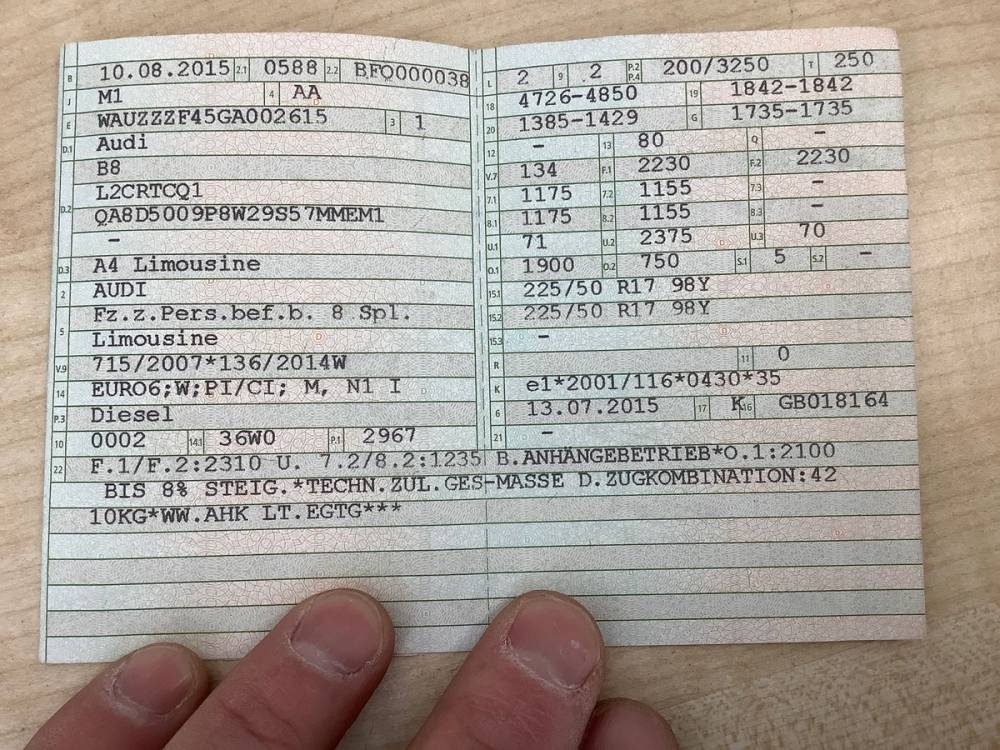 B 10.08.2015 2.1 0588 2.2 BFQ000038
J M1 4 AA
E WAUZZZF45GA002615 3 1
D.1 Audi
B8
D.2 L2CRTCQ1
QA8D5009P8W29S57MMEM1
–
D.3 A4 Limousine
2 AUDI
5 Fz.z.Pers.bef.b. 8 Spl.
Limousine
V.9 715/2007*136/2014W
14 EURO6;W;PI/CI; M, N1 I
P.3 Diesel
10 0002 14.1 36W0 P.1 2967
L 2 9 2 P.2 P.4 200/3250 T 250
18 4726-4850 19 1842-1842
20 1385-1429 G 1735-1735
12 – 13 80 Q –
V.7 134 F.1 2230 F.2 2230
7.1 1175 7.2 1155 7.3 –
8.1 1175 8.2 1155 8.3 –
U.1 71 U.2 2375 U.3 70
O.1 1900 O.2 750 S.1 5 S.2 –
15.1 225/50 R17 98Y
15.2 225/50 R17 98Y
15.3 –
R 11 0
K e1*2001/116*0430*35
6 13.07.2015 17 K 16 GB018164
21 –
22 F.1/F.2:2310 U. 7.2/8.2:1235 B.ANHÄNGEBETRIEB*O.1:2100
BIS 8% STEIG.*TECHN.ZUL.GES-MASSE D.ZUGKOMBINATION:42
10KG*WW.AHK LT.EGTG***